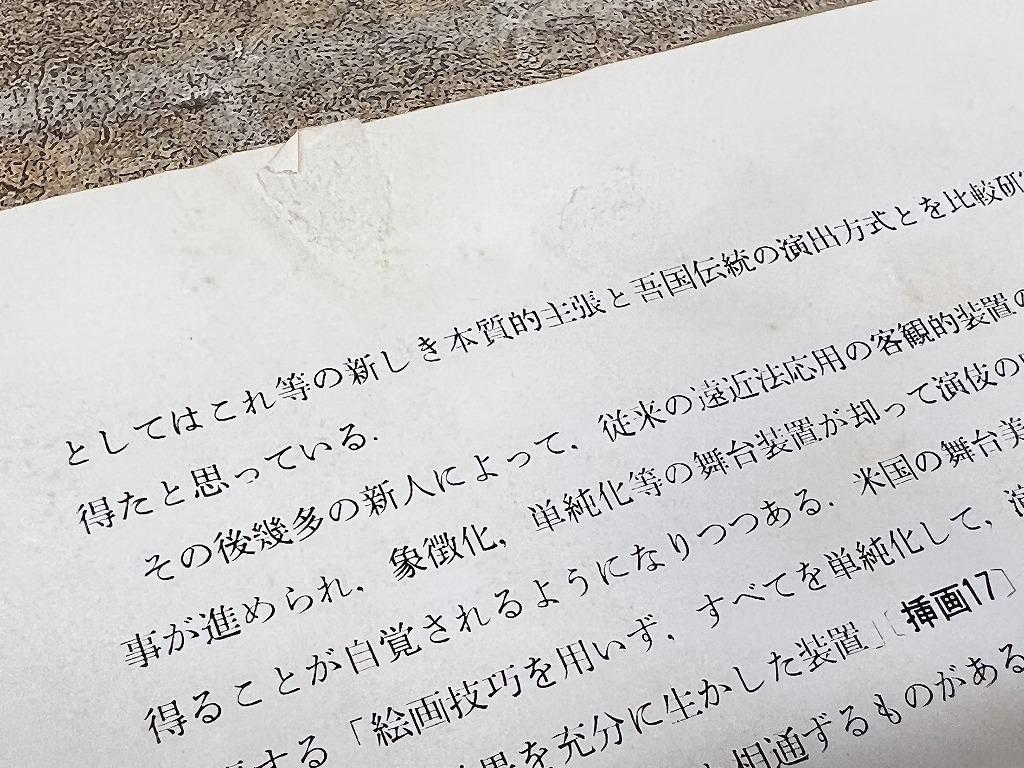 としてはこれ等の新しき本質的主張と吾国伝統の演出方式とを比較研
得たと思っている.
その後幾多の新人によって，従来の遠近法応用の客観的装置の
事が進められ，象徴化，単純化等の舞台装置が却って演伎の
得ることが自覚されるようになりつつある. 米国の舞台美
する「絵画技巧を用いず，すべてを単純化して，演
を充分に生かした装置」〔挿画17〕
相通ずるものがある